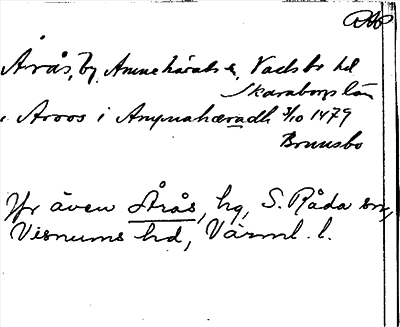 Årås, by, Amnehärads s, Vadsbo hd
Skaraborgs län
i Aroos i Amynahæradh 3/10 1479
Brunsbo
Jfr även Årås, hg, S. Råda sn,
Visnums hd, Värml. l.